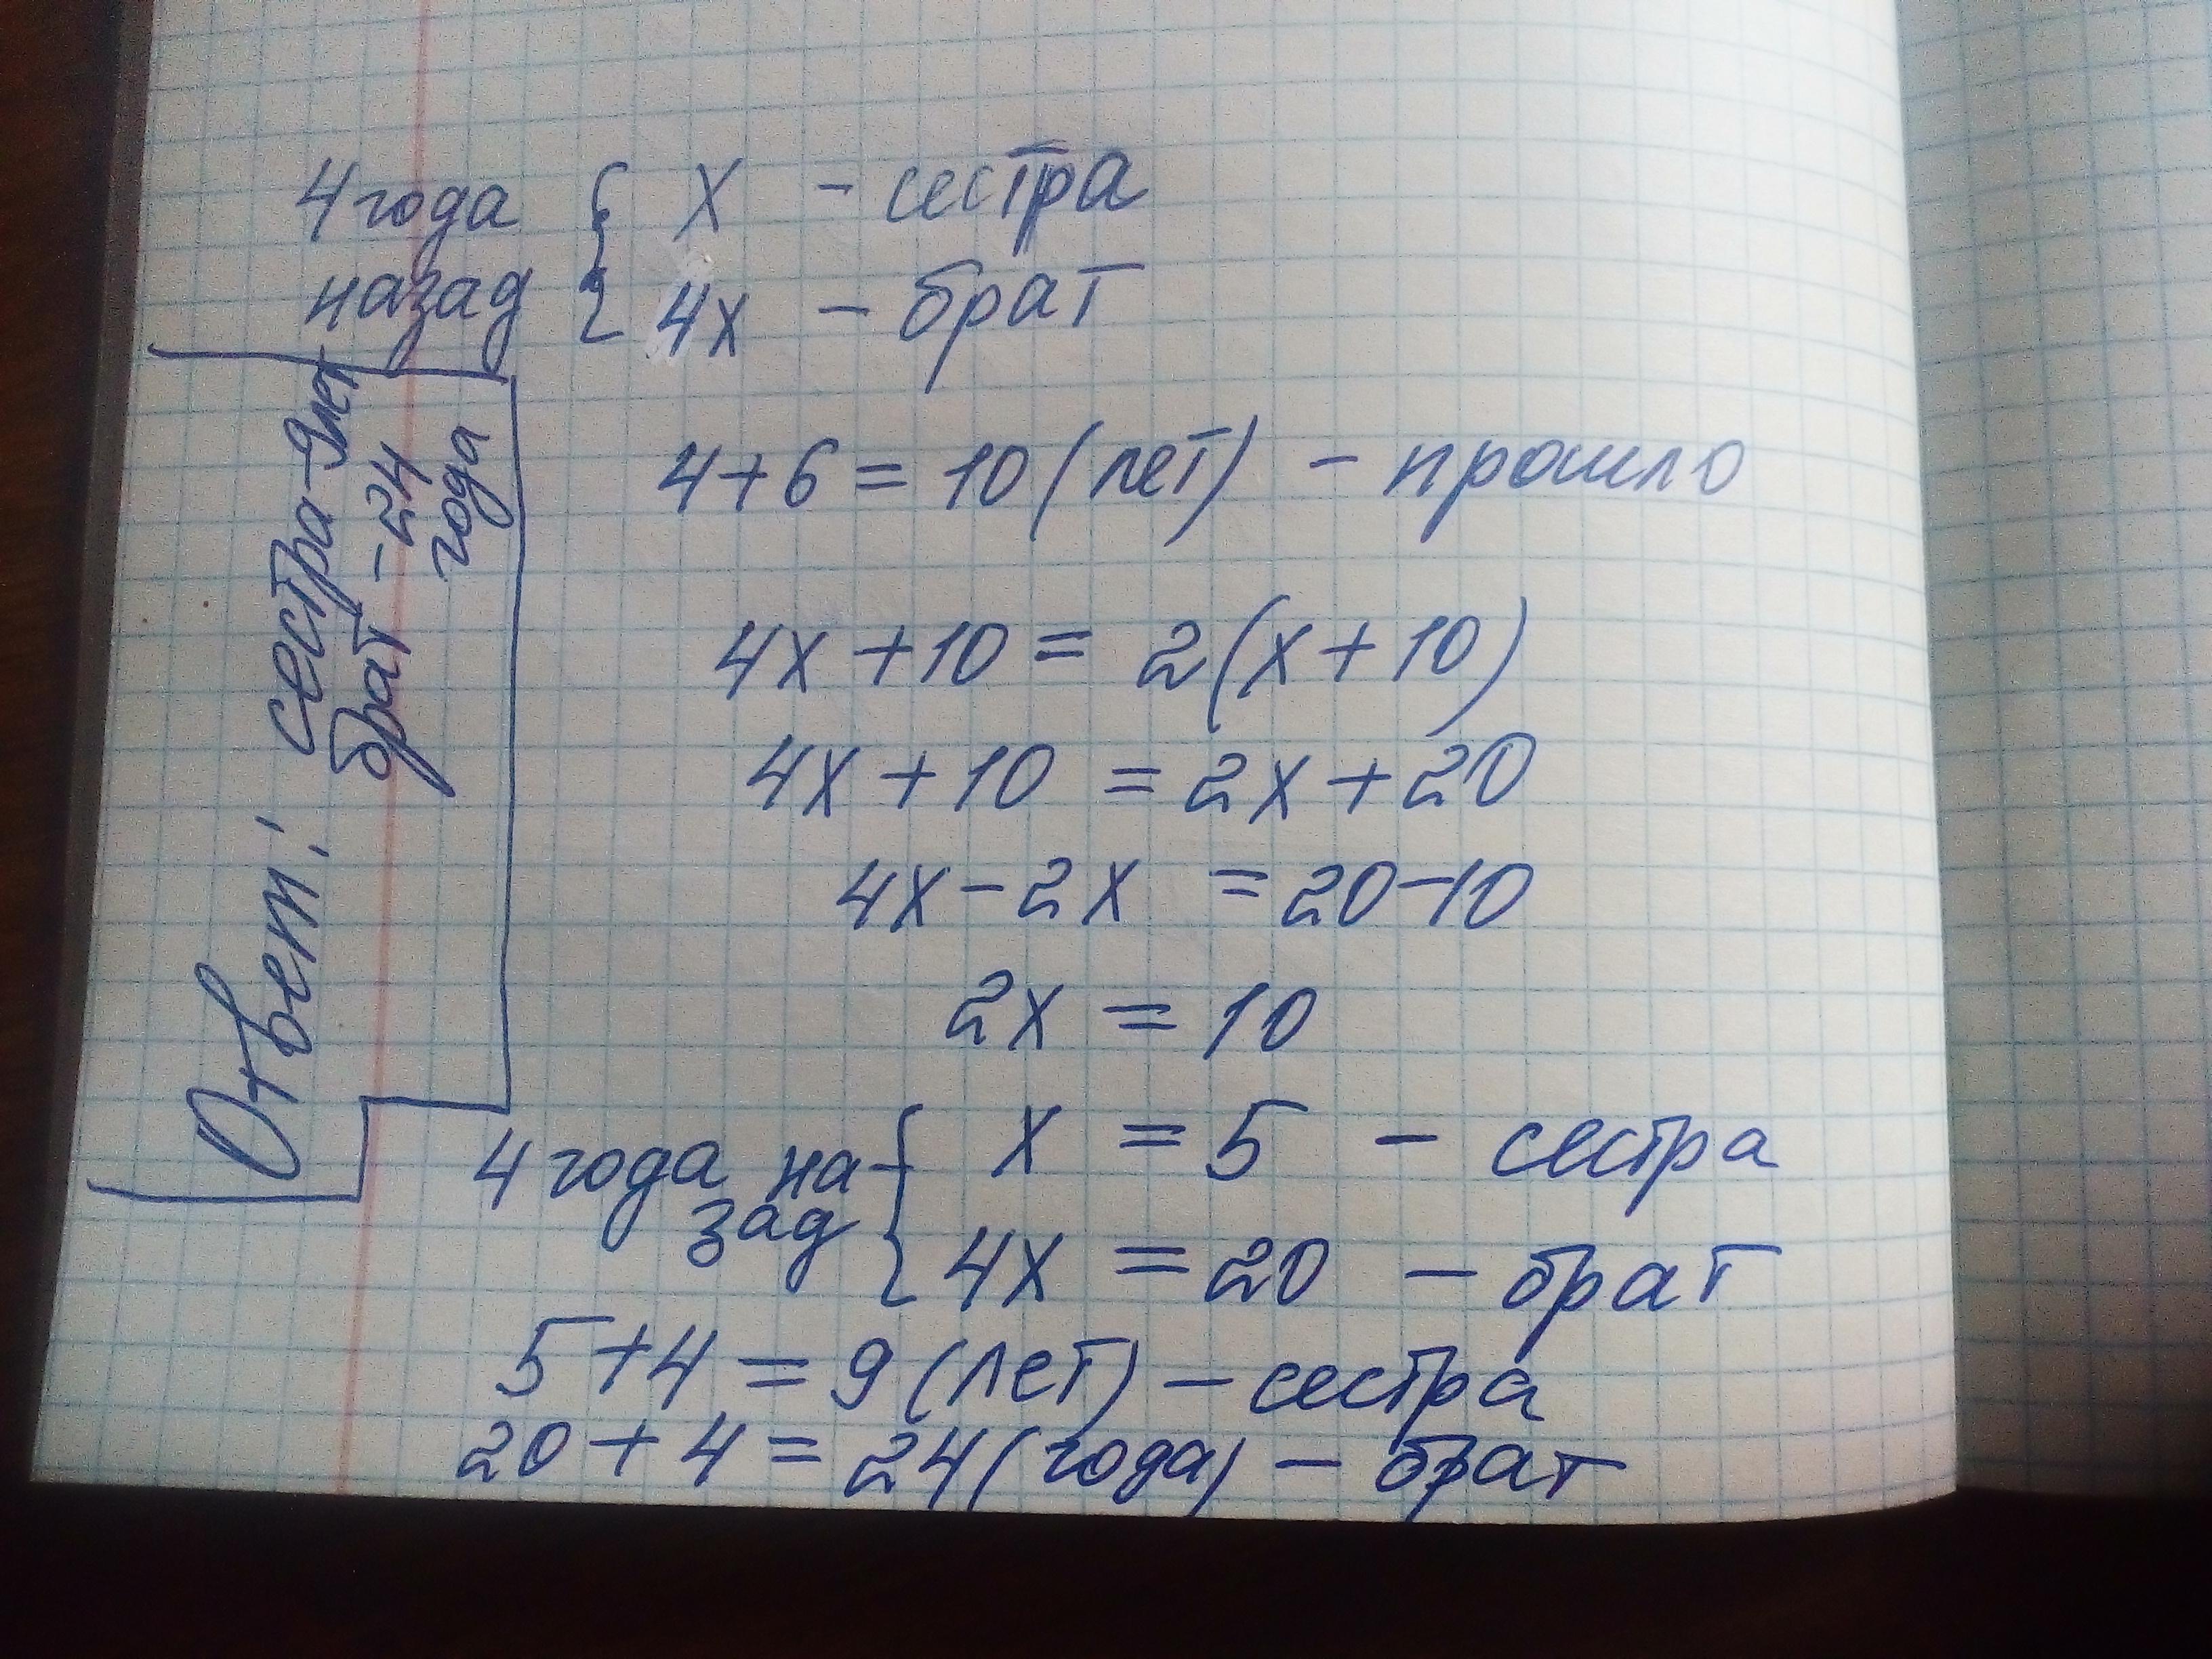 4 года { x - сестра
назад { 4x - брат
4+6 = 10 (лет) - прошло
4x + 10 = 2(x+10)
4x + 10 = 2x + 20
4x - 2x = 20 - 10
2x = 10
4 года на- { x = 5 - сестра
зад { 4x = 20 - брат
5 + 4 = 9 (лет) - сестра
20 + 4 = 24 (года) - брат
Ответ: сестра - 9 лет
брат - 24
года